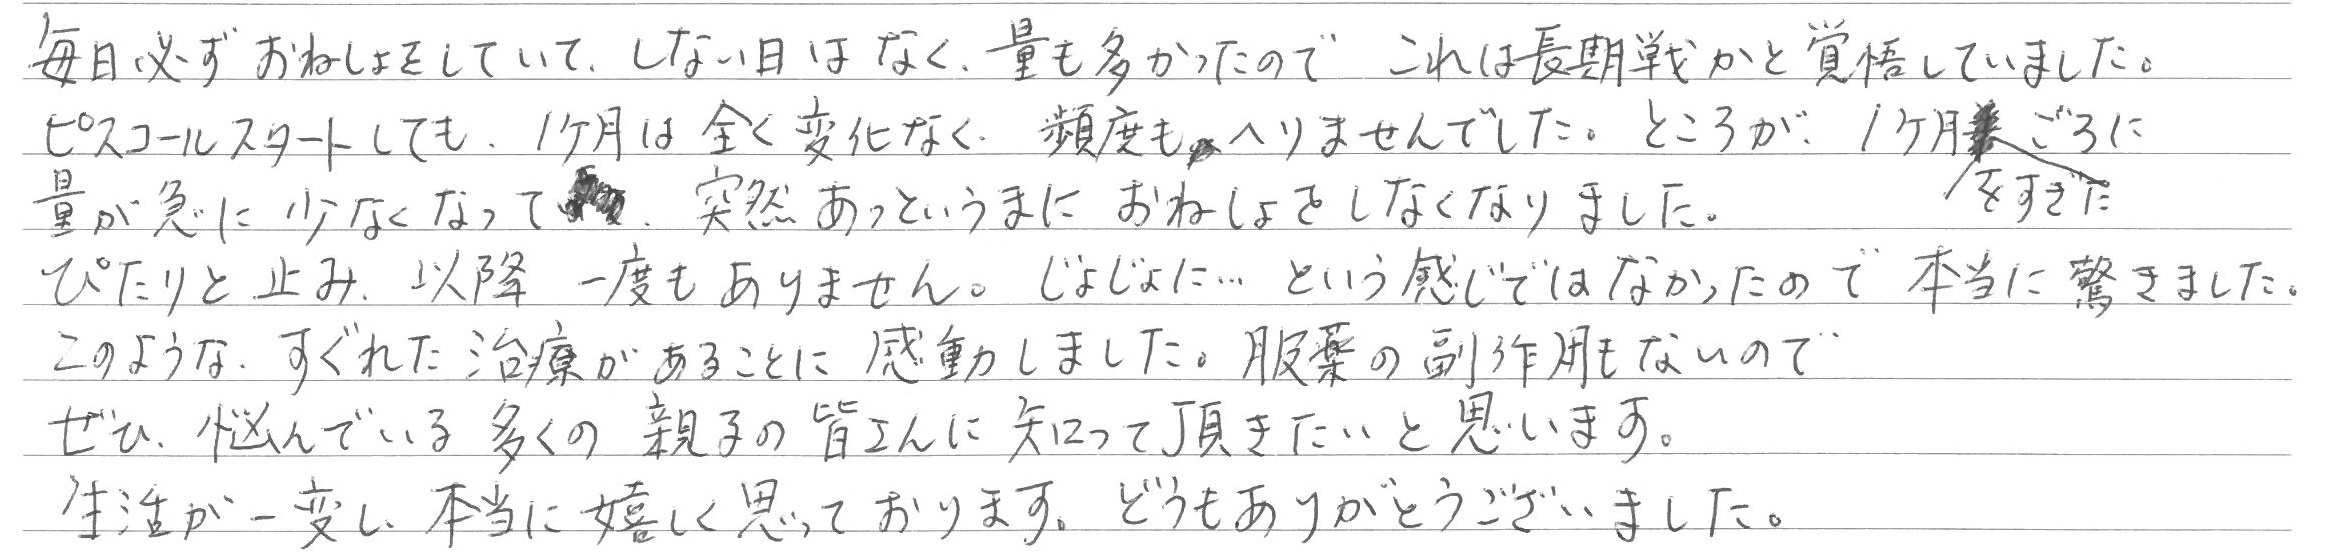 毎日必ずおねしょをしていて、しない日はなく、量も多かったので これは長期戦かと覚悟していました。
ピスコールスタートしても、1ヶ月は全く変化なく、頻度もへりませんでした。ところが、1ヶ月をすぎたごろに
量が急に少なくなって、突然あっというまにおねしょをしなくなりました。
ぴたりと止み、以降一度もありません。じょじょに…という感じではなかったので本当に驚きました。
このような、すぐれた治療があることに感動しました。服薬の副作用もないので
ぜひ、悩んでいる多くの親子の皆さんに知って頂きたいと思います。
生活が一変し、本当に嬉しく思っております。どうもありがとうございました。